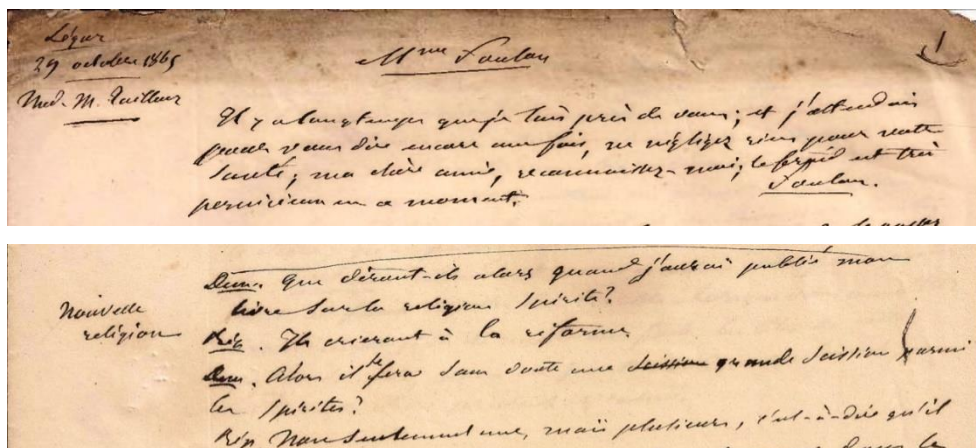 Ségur
29 octobre 1865
Med. M. Tailleur
Mme Foulon
1
Il y a longtemps que je suis près de vous, et j'attendais
pour vous dire encore une fois, ne négligez rien pour votre
santé, ma chère amie, reconnaissez-moi; le froid est très
pernicieux en ce moment.
Foulon.
Dem. Que diront-ils alors quand j'aurai publié mon
livre sur la religion spirite?
Nouvelle
religion
Rép. Ils crieront à la réforme
Dem. Alors il se fera sans doute une scission grande scission parmi
les spirites?
Rép. Non seulement une, mais plusieurs, c'est-à-dire qu'il